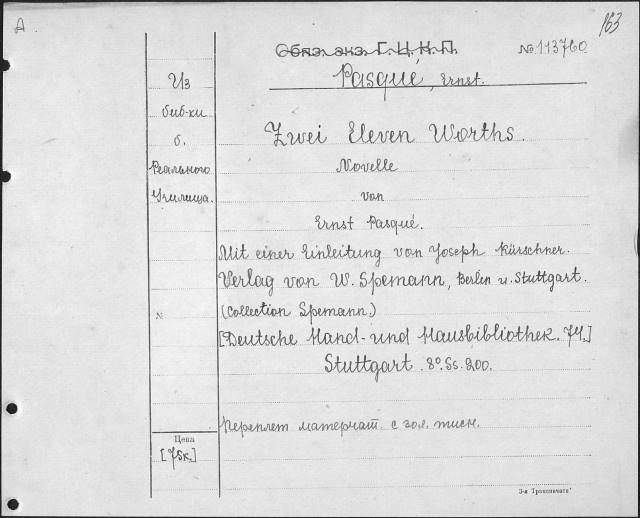 A
163
Обяз. экз. Г.Ц.К.П.
№113760
Pasqué, Ernst.
Из
биб-ки
б.
Реального
Училища.
Zwei Eleven Worths.
Novelle
von
Ernst Pasqué.
Mit einer Einleitung von Joseph Kürschner.
Verlag von W. Spemann, Berlin u. Stuttgart.
№
(Collection Spemann.)
[Deutsche Hand- und Hausbibliothek. 74.]
Stuttgart. 8º. Ss. 200.
Переплет матерчат. с зол. тисн.
Цена
[75к.]